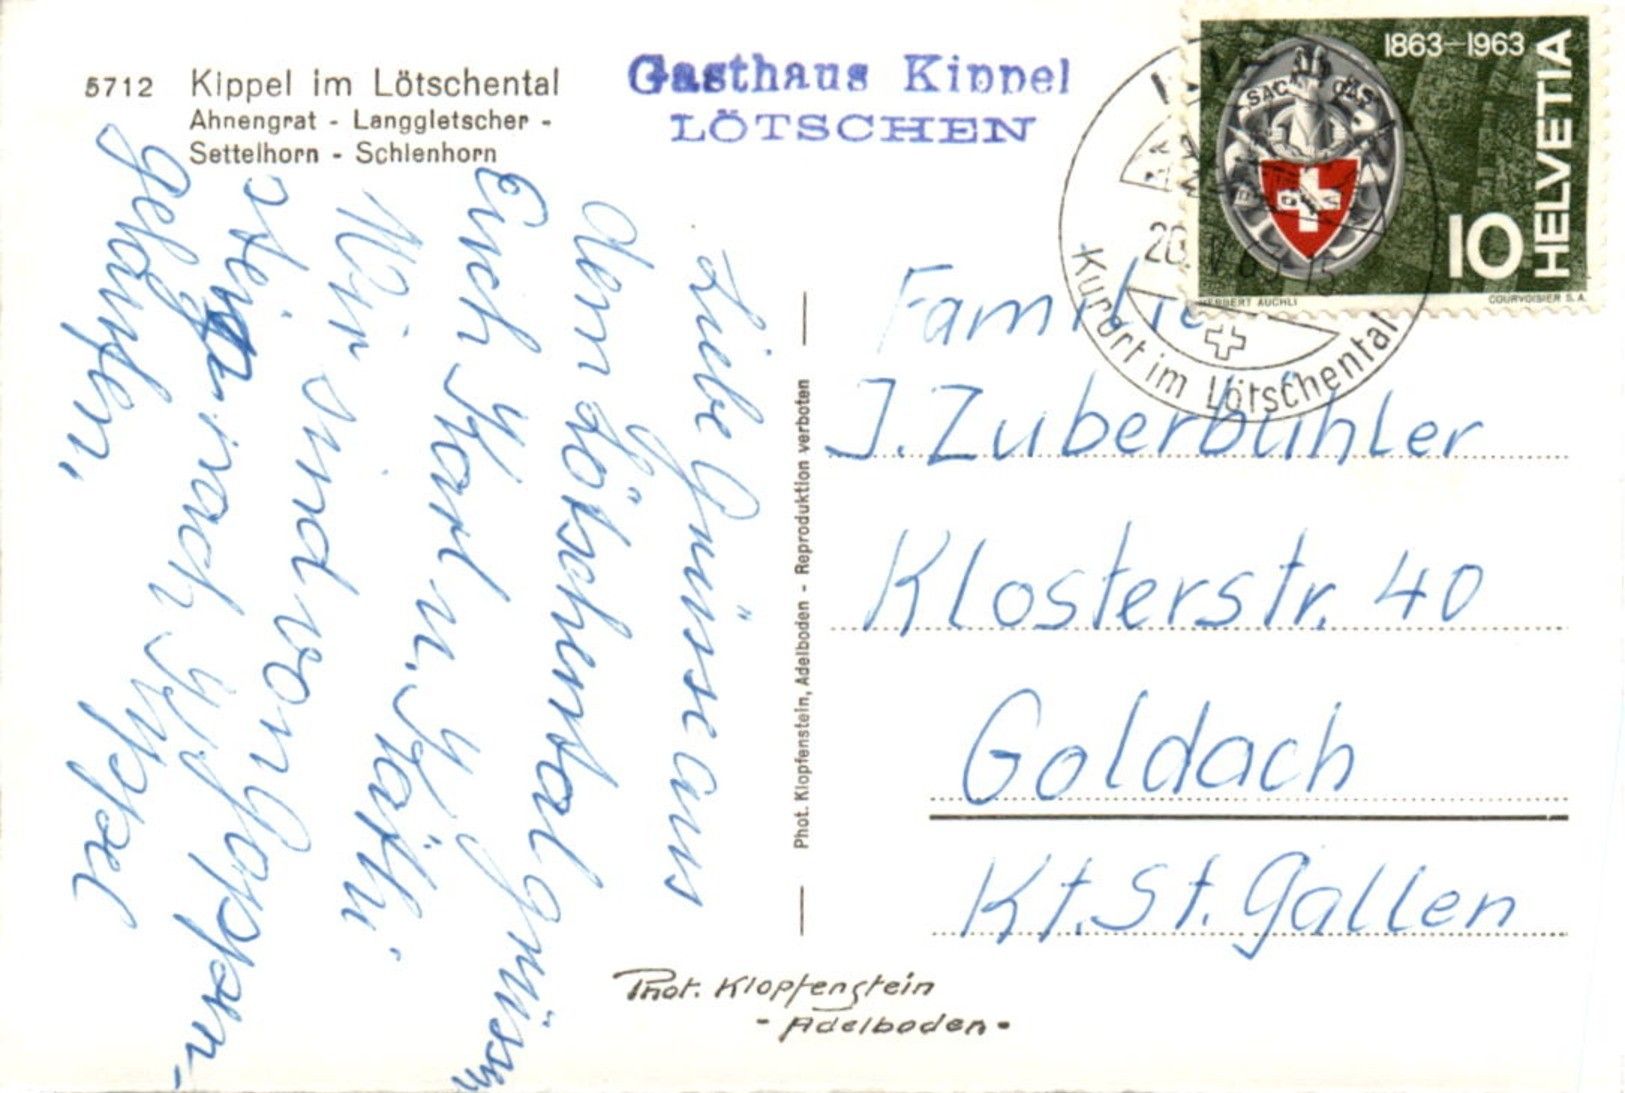 5712 Kippel im Lötschental
Ahnengrat - Langgletscher -
Settelhorn - Schienhorn
Gasthaus Kippel
LÖTSCHEN
1863-1963
SAC CAS
10
HELVETIA
HERBERT AUCHLI
COURVOISIER S.A.
Kurort im Lötschental
Liebe Grüsse aus
dem Lötschental grüssen
Euch Karl u. Käthi
Wir sind von Goppen-
stein nach Kippel
gelaufen,
Phot. Klopfenstein, Adelboden - Reproduktion verboten
Familie
J. Zuberbühler
Klosterstr. 40
Goldach
Kt. St. Gallen
Phot. Klopfenstein
- Adelboden -